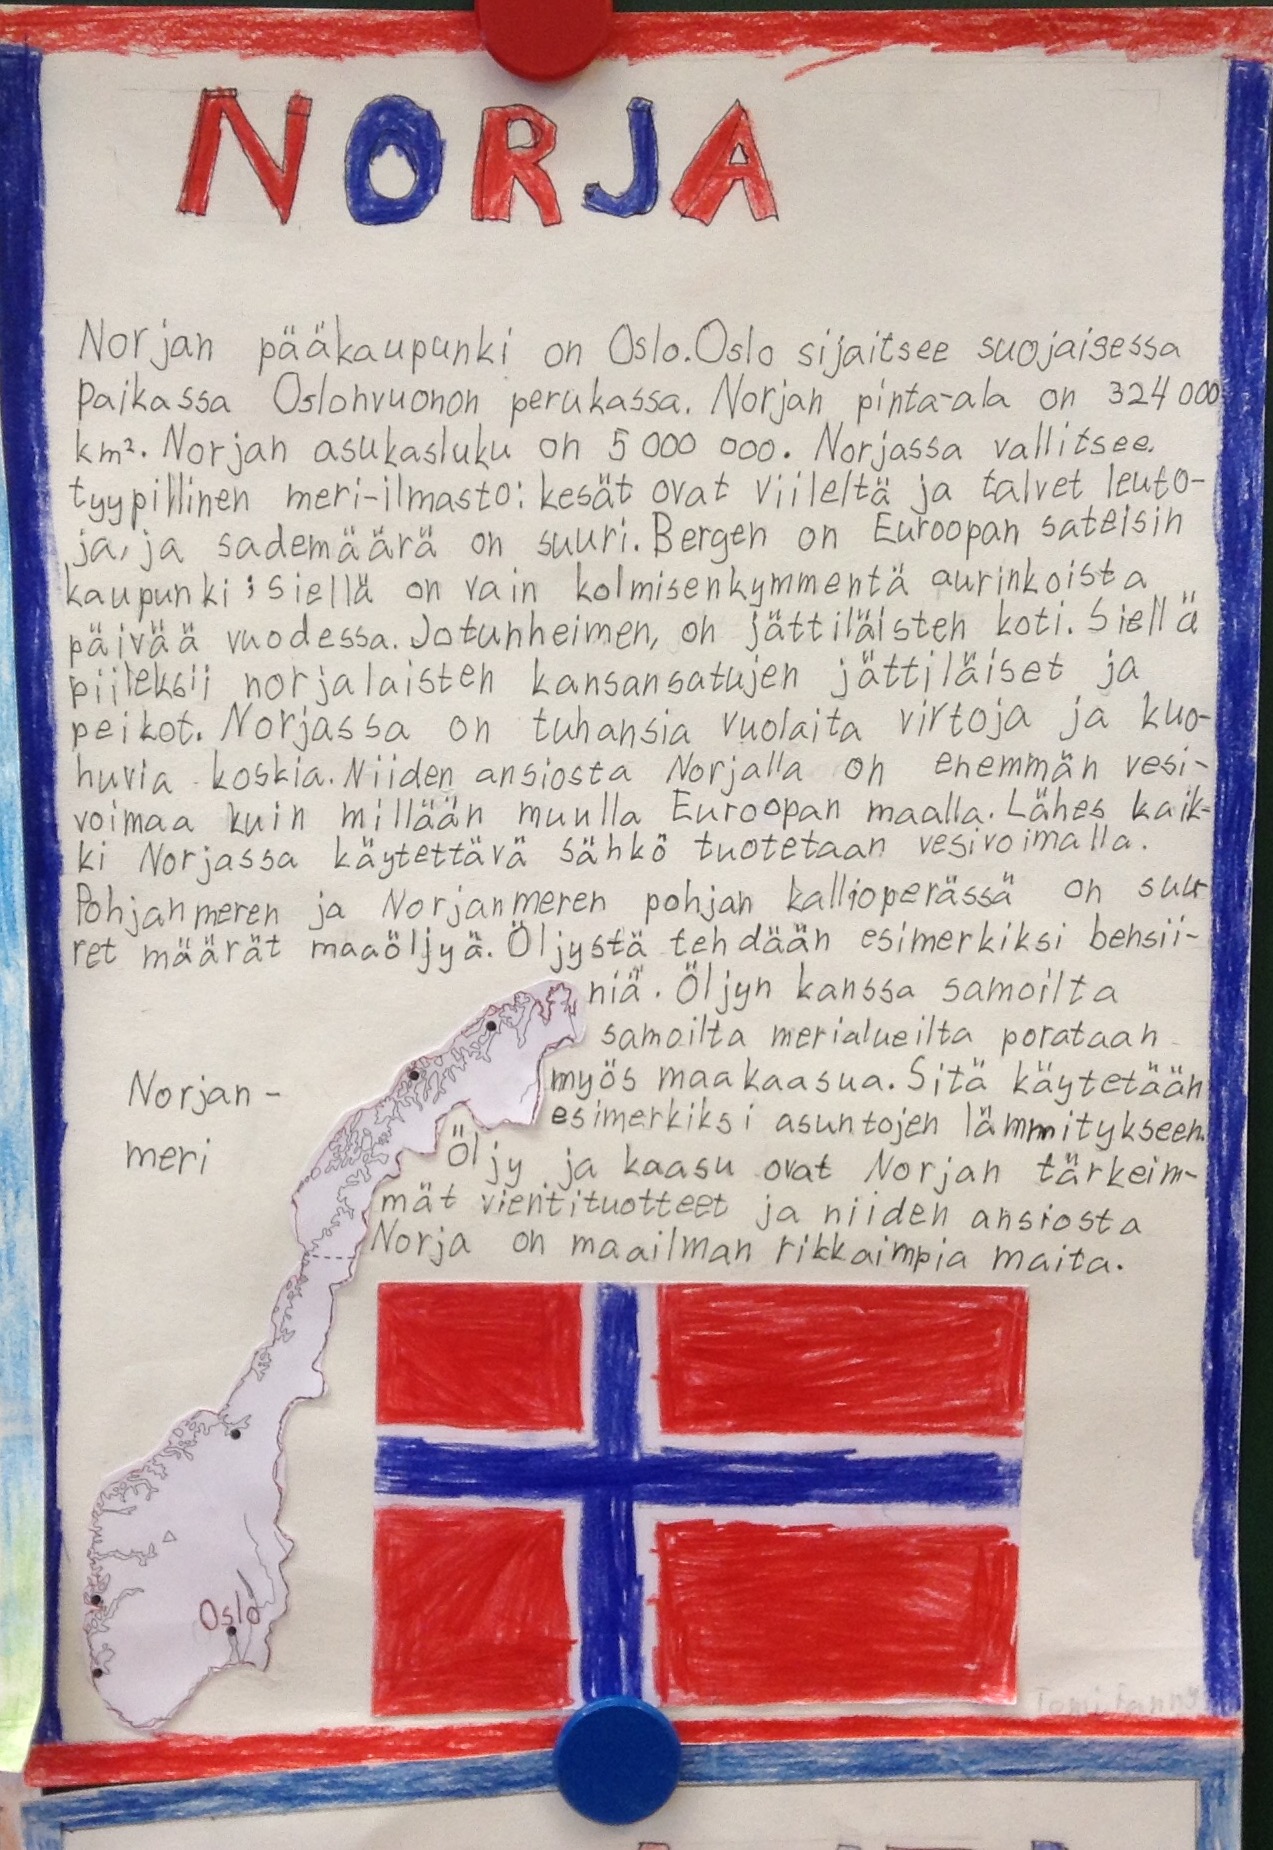 NORJA
Norjan pääkaupunki on Oslo. Oslo sijaitsee suojaisessa
paikassa Oslonvuonon perukassa. Norjan pinta-ala on 324 000
km². Norjan asukasluku on 5 000 000. Norjassa vallitsee
tyypillinen meri-ilmasto: kesät ovat viileitä ja talvet leuto-
ja, ja sademäärä on suuri. Bergen on Euroopan sateisin
kaupunki; siellä on vain kolmisenkymmentä aurinkoista
päivää vuodessa. Jotunheimen, on jättiläisten koti. Siellä
piileksii norjalaisten kansansatujen jättiläiset ja
peikot. Norjassa on tuhansia vuolaita virtoja ja kuo-
huvia koskia. Niiden ansiosta Norjalla on enemmän vesi-
voimaa kuin millään muulla Euroopan maalla. Lähes kaik-
ki Norjassa käytettävä sähkö tuotetaan vesivoimalla.
Pohjanmeren ja Norjanmeren pohjan kallioperässä on suu-
ret määrät maaöljyä. Öljystä tehdään esimerkiksi bensii-
niä. Öljyn kanssa samoilta
samoilta merialueilta porataan
myös maakaasua. Sitä käytetään
esimerkiksi asuntojen lämmitykseen.
Öljy ja kaasu ovat Norjan tärkeim-
mät vientituotteet ja niiden ansiosta
Norja on maailman rikkaimpia maita.
Norjan-
meri
Oslo